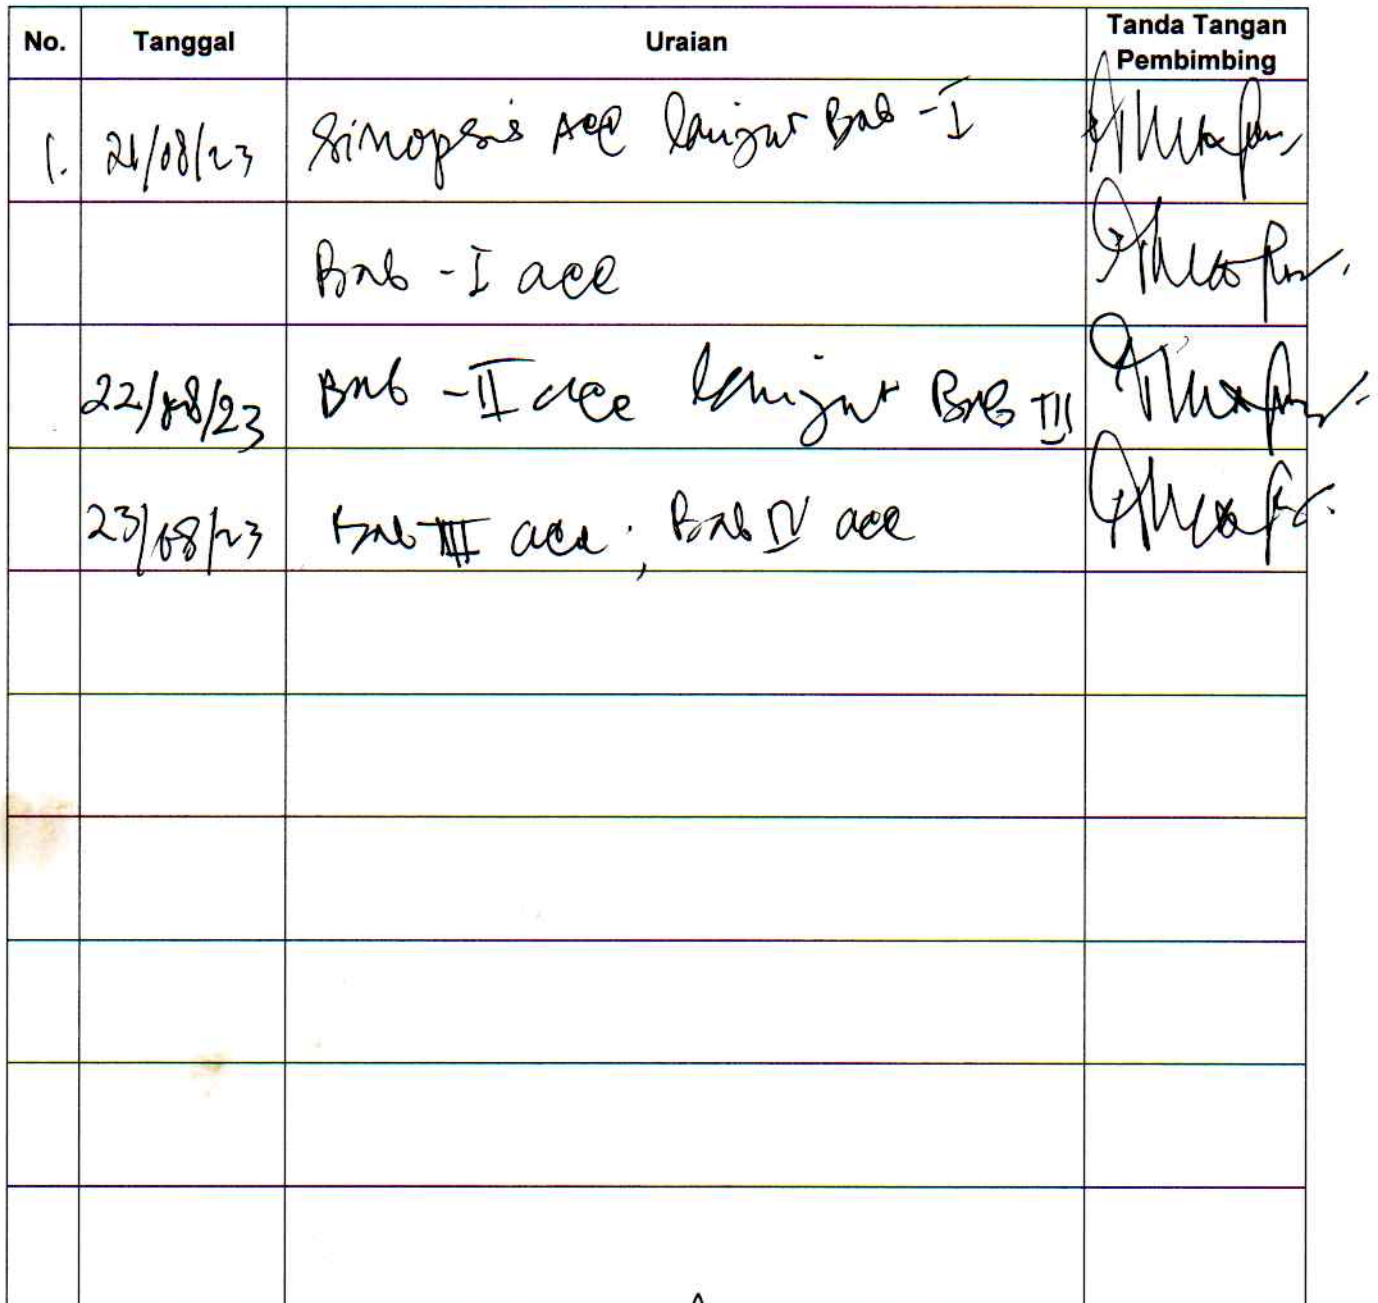 No. Tanggal Uraian Tanda Tangan
Pembimbing
1. 21/08/23 Sinopsis Acc lanjut Bab - I
Bab - I acc
22/08/23 Bab - II acc lanjut Bab III
23/08/23 Bab III acc ; Bab IV acc